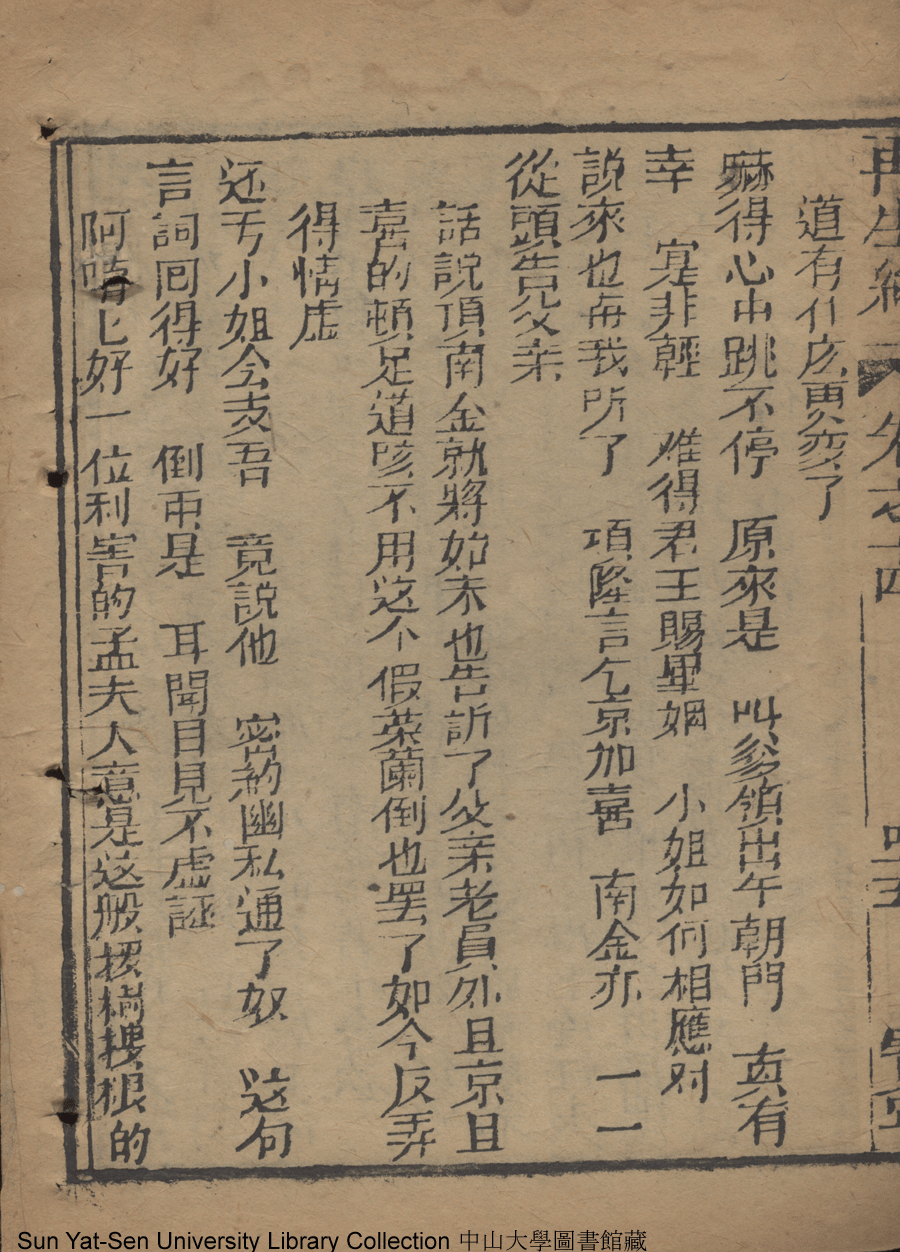 再生緣 卷之十四
道有什庅更变了
嚇得心中跳不停 原來是 叫爹領出午朝門 真有
幸 寔非輕 难得君王賜畢姻 小姐如何相應对
說來也再我听了 項隆言乞京加喜 南金亦 一一
從頭告父亲
話說項南金就將始末也告訴了父亲老員外且京且
喜的頓足道咳不用这个假菜蘭倒也罢了如今反弄
得情虛
还亏小姐会支吾 竟說他 密約幽私通了奴 这句
言詞囘得好 倒再是 耳聞目見不虛誣
阿唷匕好一位利害的孟夫人意是这般㧞樹搜根的
Sun Yat-Sen University Library Collection 中山大學圖書館藏